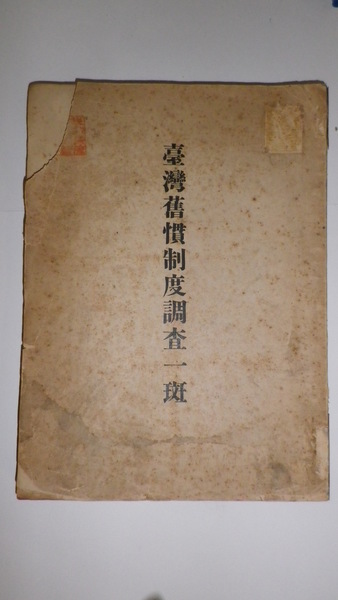 臺灣舊慣制度調査一斑